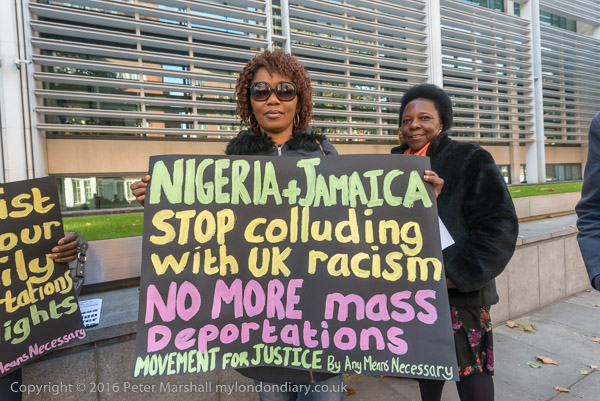 NIGERIA + JAMAICA
STOP colluding
with UK racism
NO MORE mass
Deportations
MOVEMENT FOR JUSTICE By Any Means Necessary
ist
our
ily
tations
ights
Means Necessary
Copyright © 2016 Peter Marshall mylondondiary.co.uk